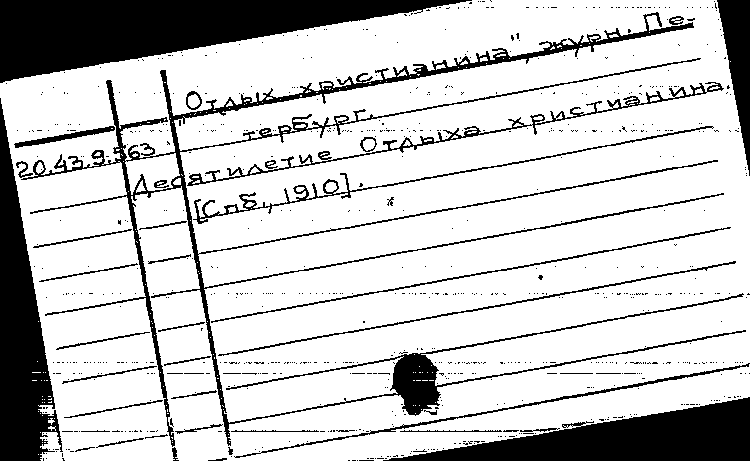 "Отдых христианина", журн. Пе-
тербург.
20.43.9.563
Десятилетие Отдыха христианина.
[Спб., 1910].